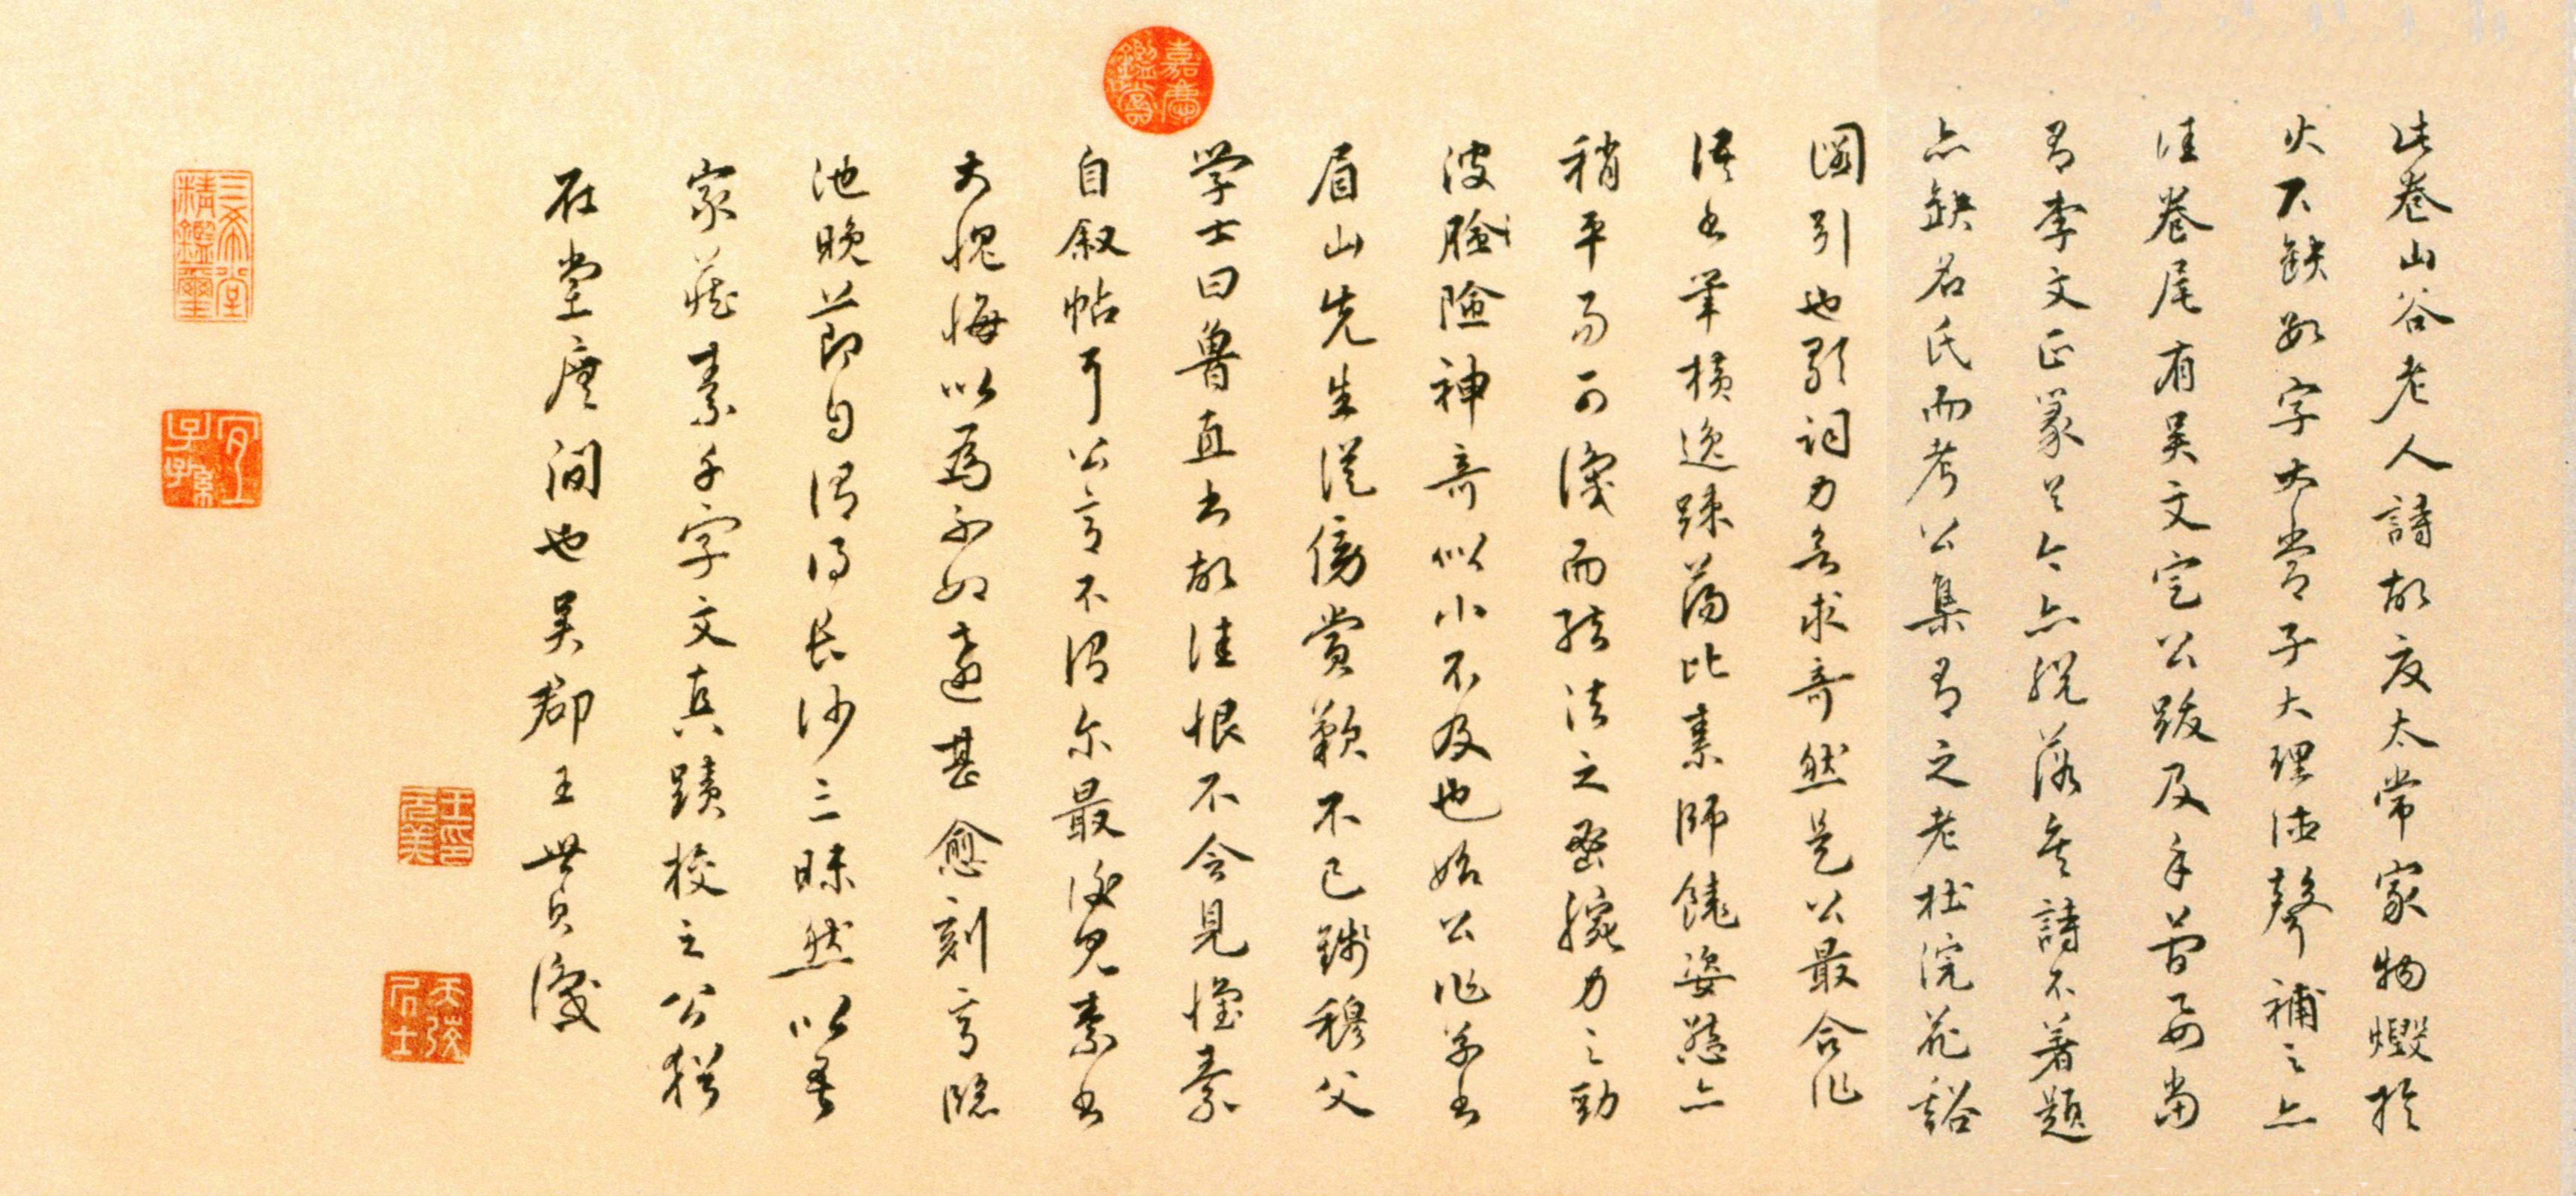 此卷山谷老人詩故友太常家物燬於
火不缺數字太常子大理德聲補之亦
佳卷尾有吳文定公跋及手曾要當
有李文正篆首今亦脫落矣詩不著題
亦缺名氏而考公集有之老杜浣花谿
圖引也歌詞力欲求奇然是公最合作
語書筆橫逸疎蕩比素師饒姿態亦
稍平易可識而結法之密腕力之勁
波險神奇似小不及也始公作草書
眉山先生從傍賞歎不已錢穆父
學士曰魯直書故佳恨不令見懷素
自敘帖耳公意不謂爾最後見素書
大愧悔以為不如遠甚愈刻意臨
池晚節自謂得長沙三昧然以吾
家藏素千字文真蹟校之公猶
在堂廡間也吳郡王世貞識
嘉慶鑑賞
三希堂精鑑璽
宜子孫
王元美印
天弢居士